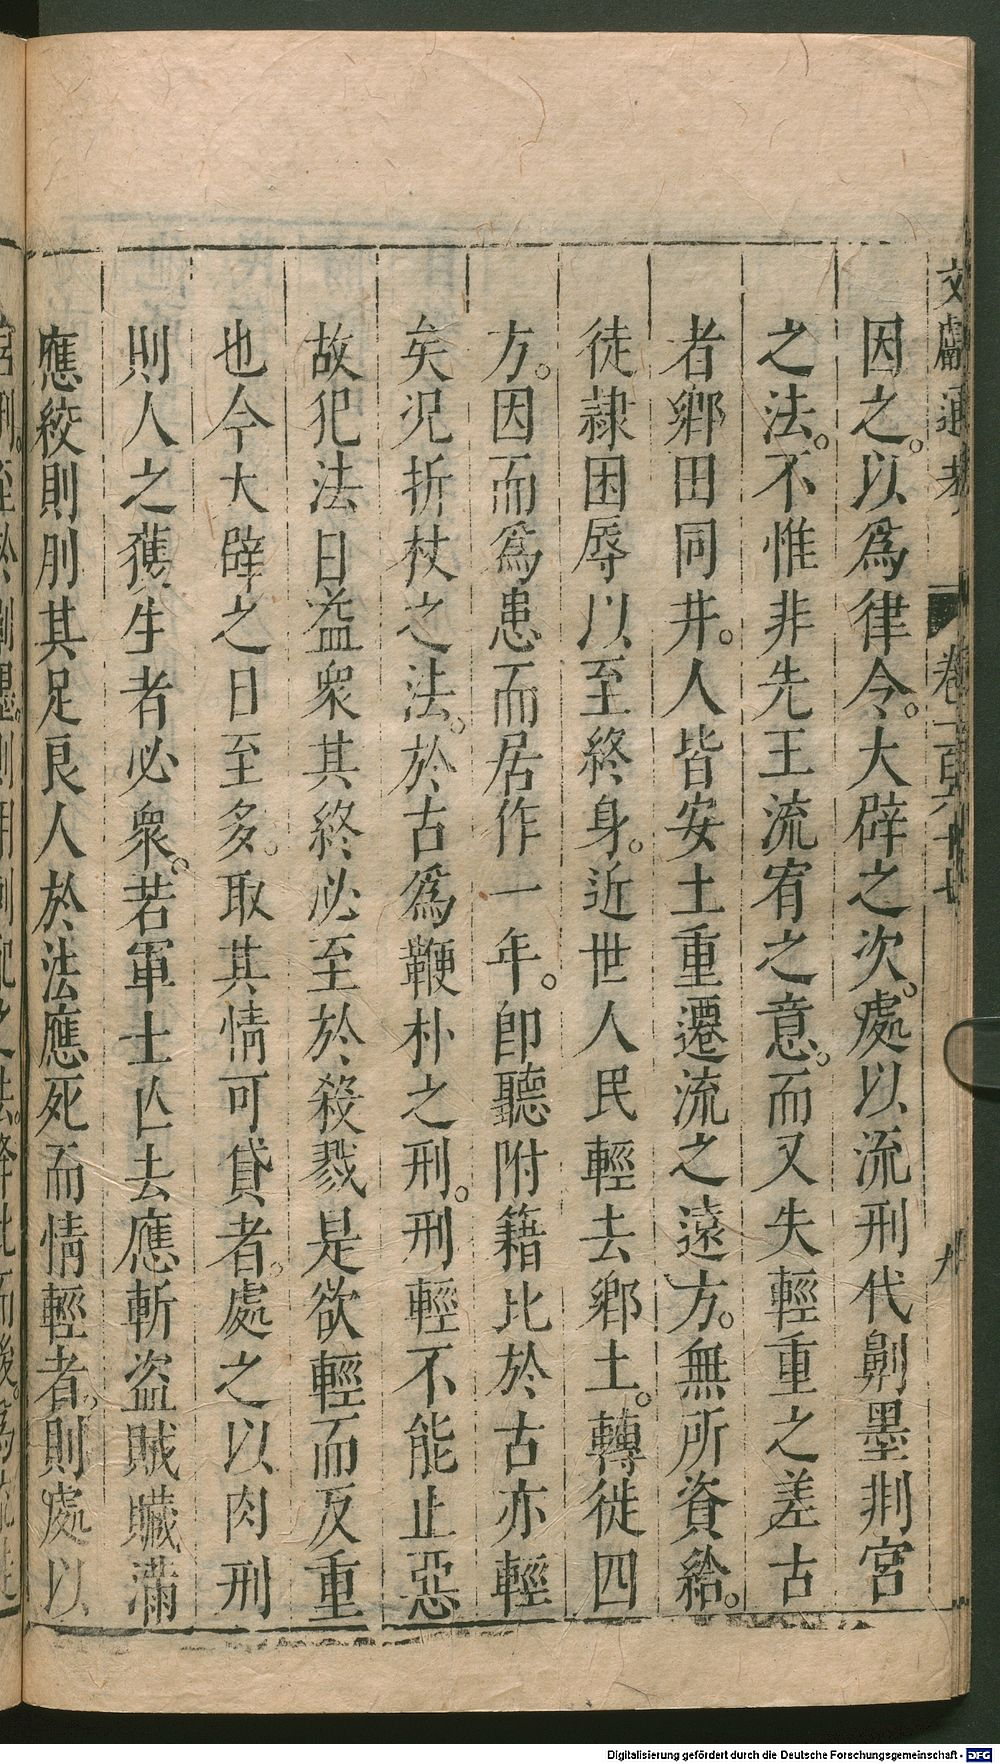 文獻通考 卷一百六十七 九
因之。以爲律令。大辟之次。處以流刑代劓墨剕宮
之法。不惟非先王流宥之意。而又失輕重之差古
者鄉田同井。人皆安土重遷流之遠方。無所資給。
徒隷困辱以至終身。近世人民輕去鄉土。轉徙四
方。因而爲患而居作一年。即聽附籍比於古亦輕
矣况折杖之法。於古爲鞭朴之刑。刑輕不能止惡
故犯法日益衆其終必至於殺戮是欲輕而反重
也今大辟之日至多。取其情可貸者。處之以肉刑
則人之獲生者必衆。若軍士亾去應斬盗賊贓滿
應絞則刖其足良人於法應死而情輕者。則處以
Digitalisierung gefördert durch die Deutsche Forschungsgemeinschaft - DFG